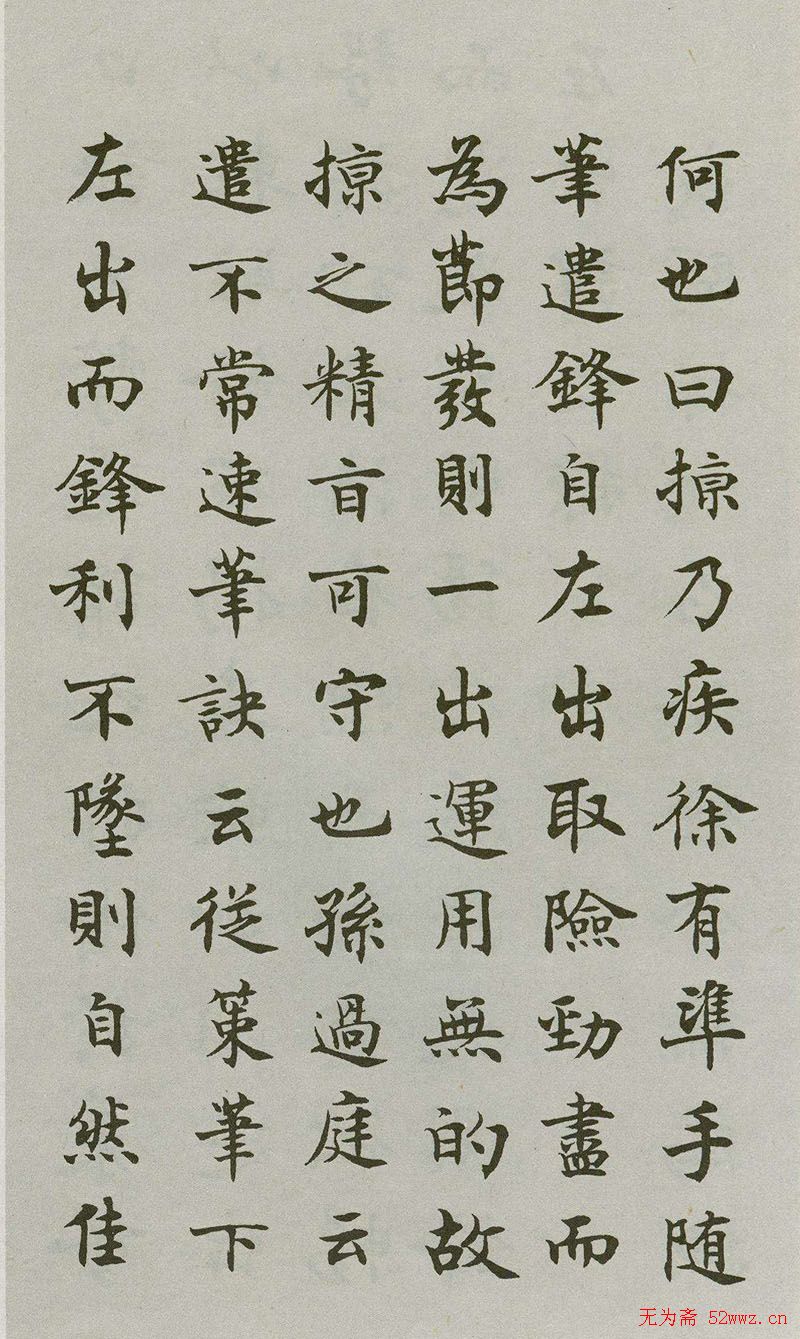 何也曰掠乃疾徐有準手随
筆遣鋒自左出取險勁盡而
為節發則一出運用無的故
掠之精旨可守也孫過庭云
遣不常速筆訣云從策筆下
左出而鋒利不墜則自然佳
无为斋 52wwz.cn